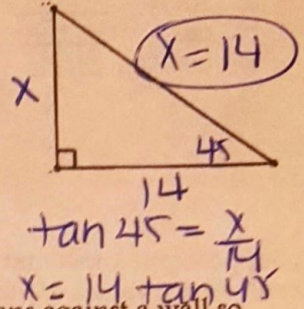 x = 14
x
45
14
tan 45 = x/14
x = 14 tan 45